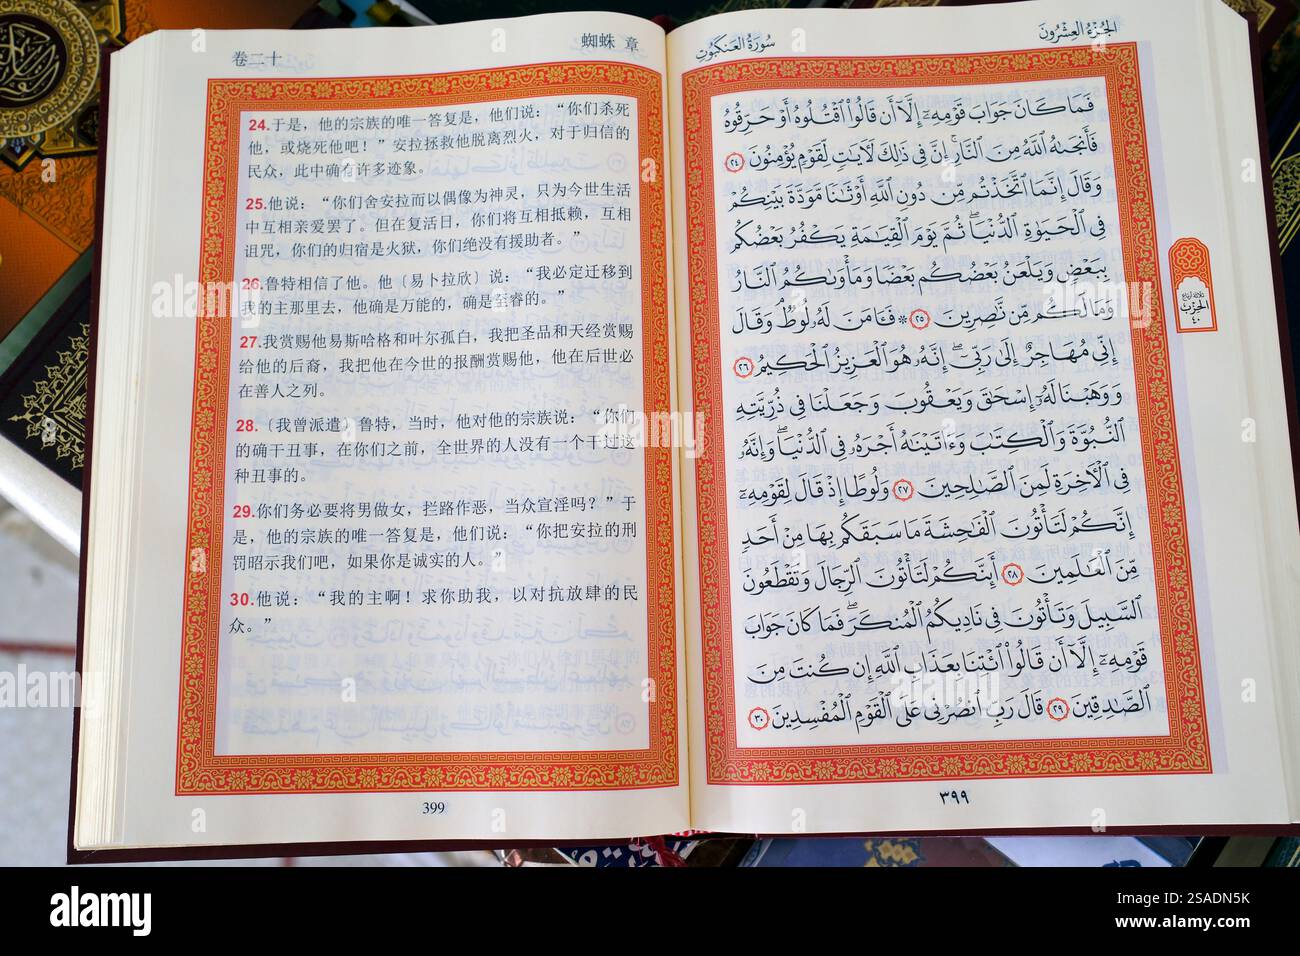 卷二十
蜘蛛 章
24.于是，他的宗族的唯一答复是，他们说：“你们杀死
他，或烧死他吧！”安拉拯救他脱离烈火，对于归信的
民众，此中确有许多迹象。
25.他说：“你们舍安拉而以偶像为神灵，只为今世生活
中互相亲爱罢了。但在复活日，你们将互相抵赖，互相
诅咒，你们的归宿是火狱，你们绝没有援助者。”
26.鲁特相信了他。他〔易卜拉欣〕说：“我必定迁移到
我的主那里去，他确是万能的，确是至睿的。”
27.我赏赐他易斯哈格和叶尔孤白，我把圣品和天经赏赐
给他的后裔，我把他在今世的报酬赏赐他，他在后世必
在善人之列。
28.〔我曾派遣〕鲁特，当时，他对他的宗族说：“你们
的确干丑事，在你们之前，全世界的人没有一个干过这
种丑事的。
29.你们务必要将男做女，拦路作恶，当众宣淫吗？”于
是，他的宗族的唯一答复是，他们说：“你把安拉的刑
罚昭示我们吧，如果你是诚实的人。”
30.他说：“我的主啊！求你助我，以对抗放肆的民
众。”
399
سُورَةُ العَنكَبُوتِ
الجُزْءُ العِشْرُونَ
فَمَا كَانَ جَوَابَ قَوْمِهِۦٓ إِلَّآ أَن قَالُوا۟ ٱقْتُلُوهُ أَوْ حَرِّقُوهُ
فَأَنجَىٰهُ ٱللَّهُ مِنَ ٱلنَّارِ إِنَّ فِى ذَٰلِكَ لَـَٔايَـٰتٍ لِّقَوْمٍ يُؤْمِنُونَ ٢٤
وَقَالَ إِنَّمَا ٱتَّخَذْتُم مِّن دُونِ ٱللَّهِ أَوْثَـٰنًا مَّوَدَّةَ بَيْنِكُمْ
فِى ٱلْحَيَوٰةِ ٱلدُّنْيَا ۖ ثُمَّ يَوْمَ ٱلْقِيَـٰمَةِ يَكْفُرُ بَعْضُكُم
بِبَعْضٍ وَيَلْعَنُ بَعْضُكُم بَعْضًا وَمَأْوَىٰكُمُ ٱلنَّارُ
وَمَا لَكُم مِّن نَّـٰصِرِينَ ٢٥ ۞ فَـَٔامَنَ لَهُۥ لُوطٌ ۘ وَقَالَ
إِنِّى مُهَاجِرٌ إِلَىٰ رَبِّىٓ ۖ إِنَّهُۥ هُوَ ٱلْعَزِيزُ ٱلْحَكِيمُ ٢٦
وَوَهَبْنَا لَهُۥٓ إِسْحَـٰقَ وَيَعْقُوبَ وَجَعَلْنَا فِى ذُرِّيَّتِهِ
ٱلنُّبُوَّةَ وَٱلْكِتَـٰبَ وَءَاتَيْنَـٰهُ أَجْرَهُۥ فِى ٱلدُّنْيَا ۖ وَإِنَّهُۥ
فِى ٱلْـَٔاخِرَةِ لَمِنَ ٱلصَّـٰلِحِينَ ٢٧ وَلُوطًا إِذْ قَالَ لِقَوْمِهِۦٓ
إِنَّكُمْ لَتَأْتُونَ ٱلْفَـٰحِشَةَ مَا سَبَقَكُم بِهَا مِنْ أَحَدٍ
مِّنَ ٱلْعَـٰلَمِينَ ٢٨ أَئِنَّكُمْ لَتَأْتُونَ ٱلرِّجَالَ وَتَقْطَعُونَ
ٱلسَّبِيلَ وَتَأْتُونَ فِى نَادِيكُمُ ٱلْمُنكَرَ ۖ فَمَا كَانَ جَوَابَ
قَوْمِهِۦٓ إِلَّآ أَن قَالُوا۟ ٱئْتِنَا بِعَذَابِ ٱللَّهِ إِن كُنتَ مِنَ
ٱلصَّـٰدِقِينَ ٢٩ قَالَ رَبِّ ٱنصُرْنِى عَلَى ٱلْقَوْمِ ٱلْمُفْسِدِينَ ٣٠
ثلاثة أرباع
الحزب
٤٠
٣٩٩
alamy
Image ID: 2SADN5K
www.alamy.com